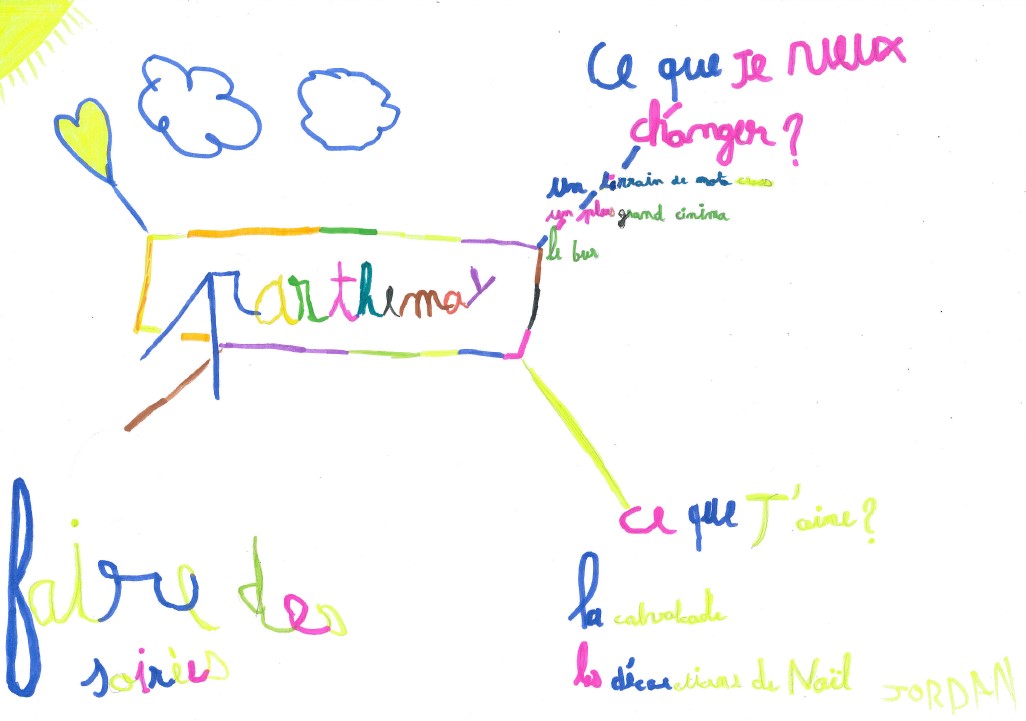 Ce que Je veux
changer ?
un terrain de moto cross
un plus grand cinima
le bus
Parthenay
Ce que J'aime ?
faire des
soirées
la
les décorations de Noël
JORDAN